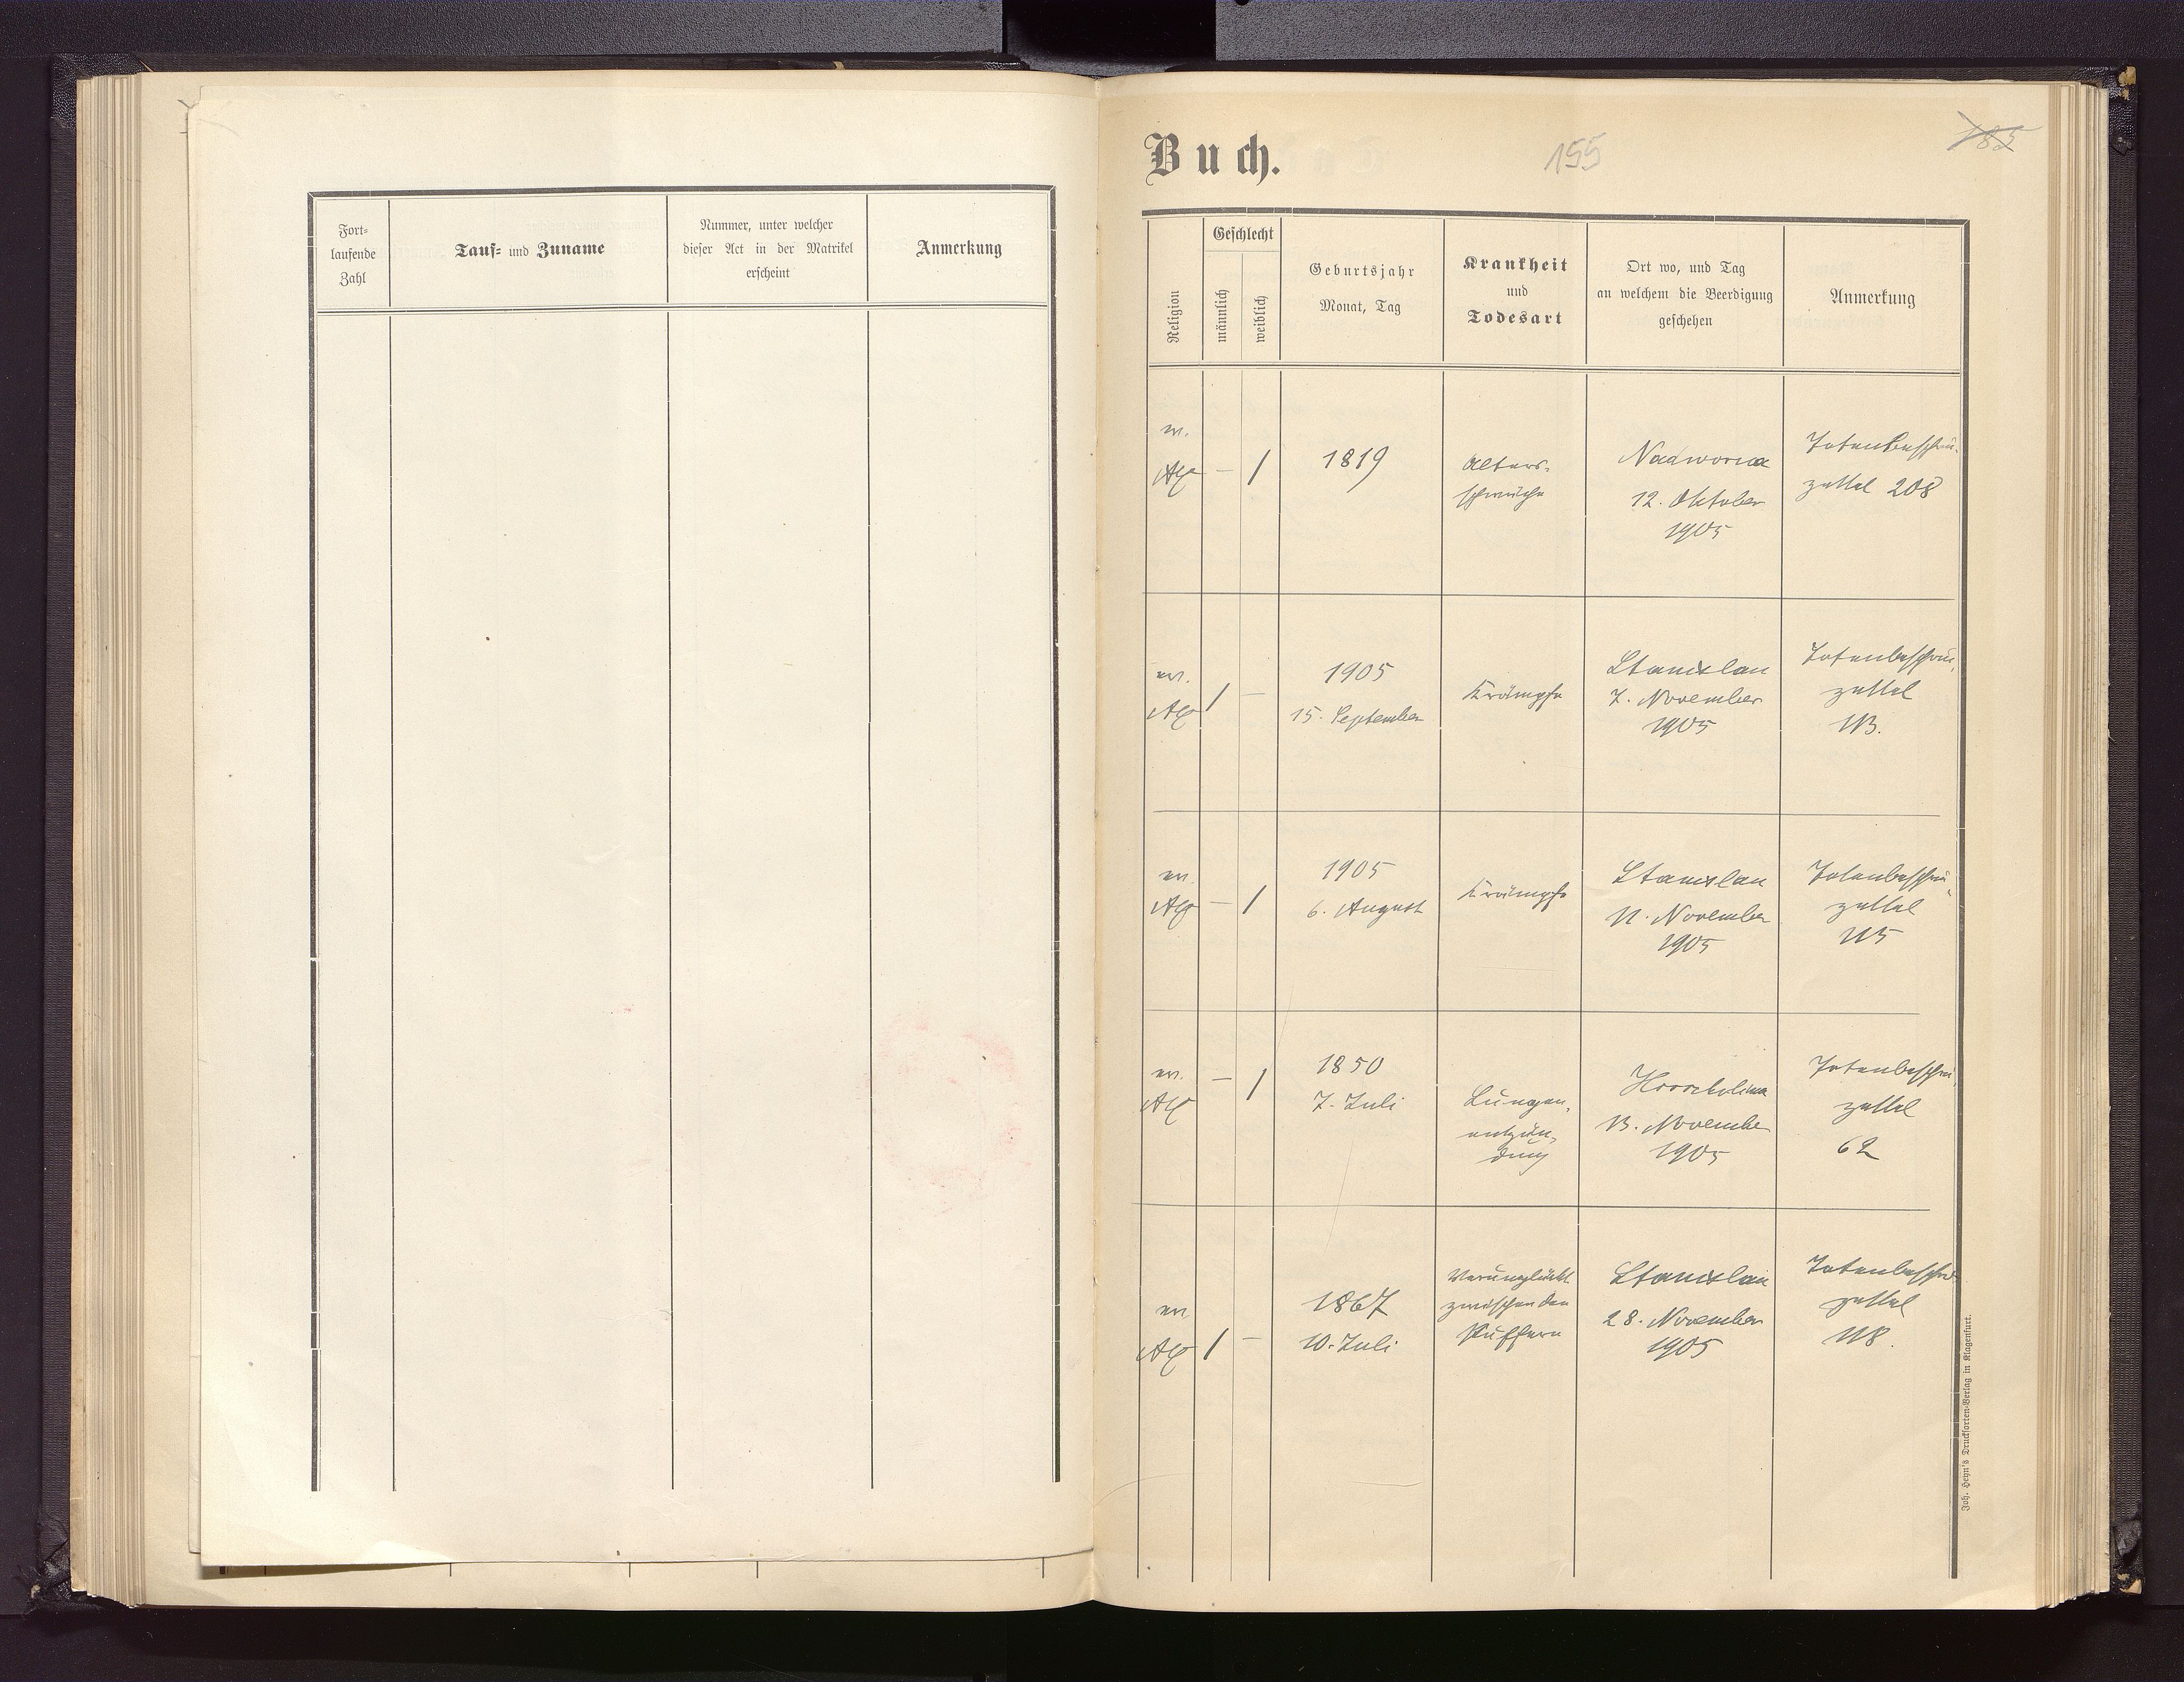 Fort-
laufende
Zahl
Tauf- und Zuname
Nummer, unter welcher
dieser Act in der Matrikel
erscheint
Anmerkung
Buch.
155
185
Religion
Geschlecht
männlich
weiblich
Geburtsjahr
Monat, Tag
Krankheit
und
Todesart
Ort wo, und Tag
an welchem die Beerdigung
geschehen
Anmerkung
— /
1819
Alters-
schwäche
Nadworna
12. Oktober
1905
Totenbeschau-
zettel 208
/ —
1905
15. September
Krämpfe
Stanislau
7. November
1905
Totenbeschau-
zettel
113.
— /
1905
6. August
Krämpfe
Stanislau
11. November
1905
Totenbeschau-
zettel
115
— /
1850
7. Juli
Lungen-
entzün-
dung
13. November
1905
Totenbeschau-
zettel
62
/ —
1867
10. Juli
Verunglückt
zwischen den
Puffern
Stanislau
28. November
1905
Totenbeschau-
zettel
118.
Joh. Heyn's Drucksorten-Verlag in Klagenfurt.